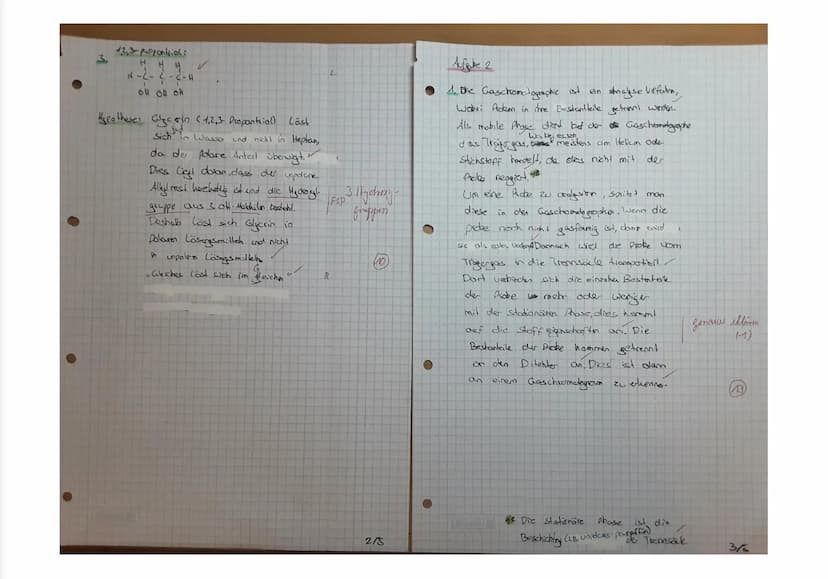 3. 1,2,3-Propantriol:
H H H
H-C-C-C-H
OH OH OH
Hypothese: Glycerin (1,2,3-Propantriol) löst
sich in Wasser und nicht in Heptan,
da der Polare Anteil überwiegt.
Dies liegt daran, dass der unpolare
Alkylrest ist und die Hydroxyl-
gruppe aus 3 OH-Molekülen besteht.
FSP
3 Hydroxy-
gruppen
Deshalb löst sich Glycerin in
Polaren Lösungsmitteln und nicht
in unpolaren Lösungsmitteln.
"Gleiches löst sich im Gleichen"
10
R
2/5
Aufgabe 2
1. Die Gaschromatographie ist ein Analyseverfahren,
wobei in ihre Bestandteile getrennt werden.
Als mobile Phase dient bei der Gaschromatographie
das Trägergas, wobei es sich meistens um Helium oder
Stickstoff handelt, da dies nicht mit der
Probe reagiert.
Um eine Probe zu analysieren, spritzt man
diese in den Gaschromatographen. Wenn die
Probe noch nicht gasförmig ist, dann wird
sie als erstes Danach wird die Probe vom
Trägergas in die Trennsäule transportiert.
Dort verbinden sich die einzelnen Bestandteile
der Probe mehr oder weniger
mit der stationären Phase, dies kommt
auf die Stoffeigenschaften an. Die
genauer erklären
(-1)
Bestandteile der Probe kommen getrennt
an den Detektor an. Dies ist dann
an einem Gaschromatogramm zu erkennen.
Die stationäre Phase ist die
Beschichtung der Trennsäule
3/5